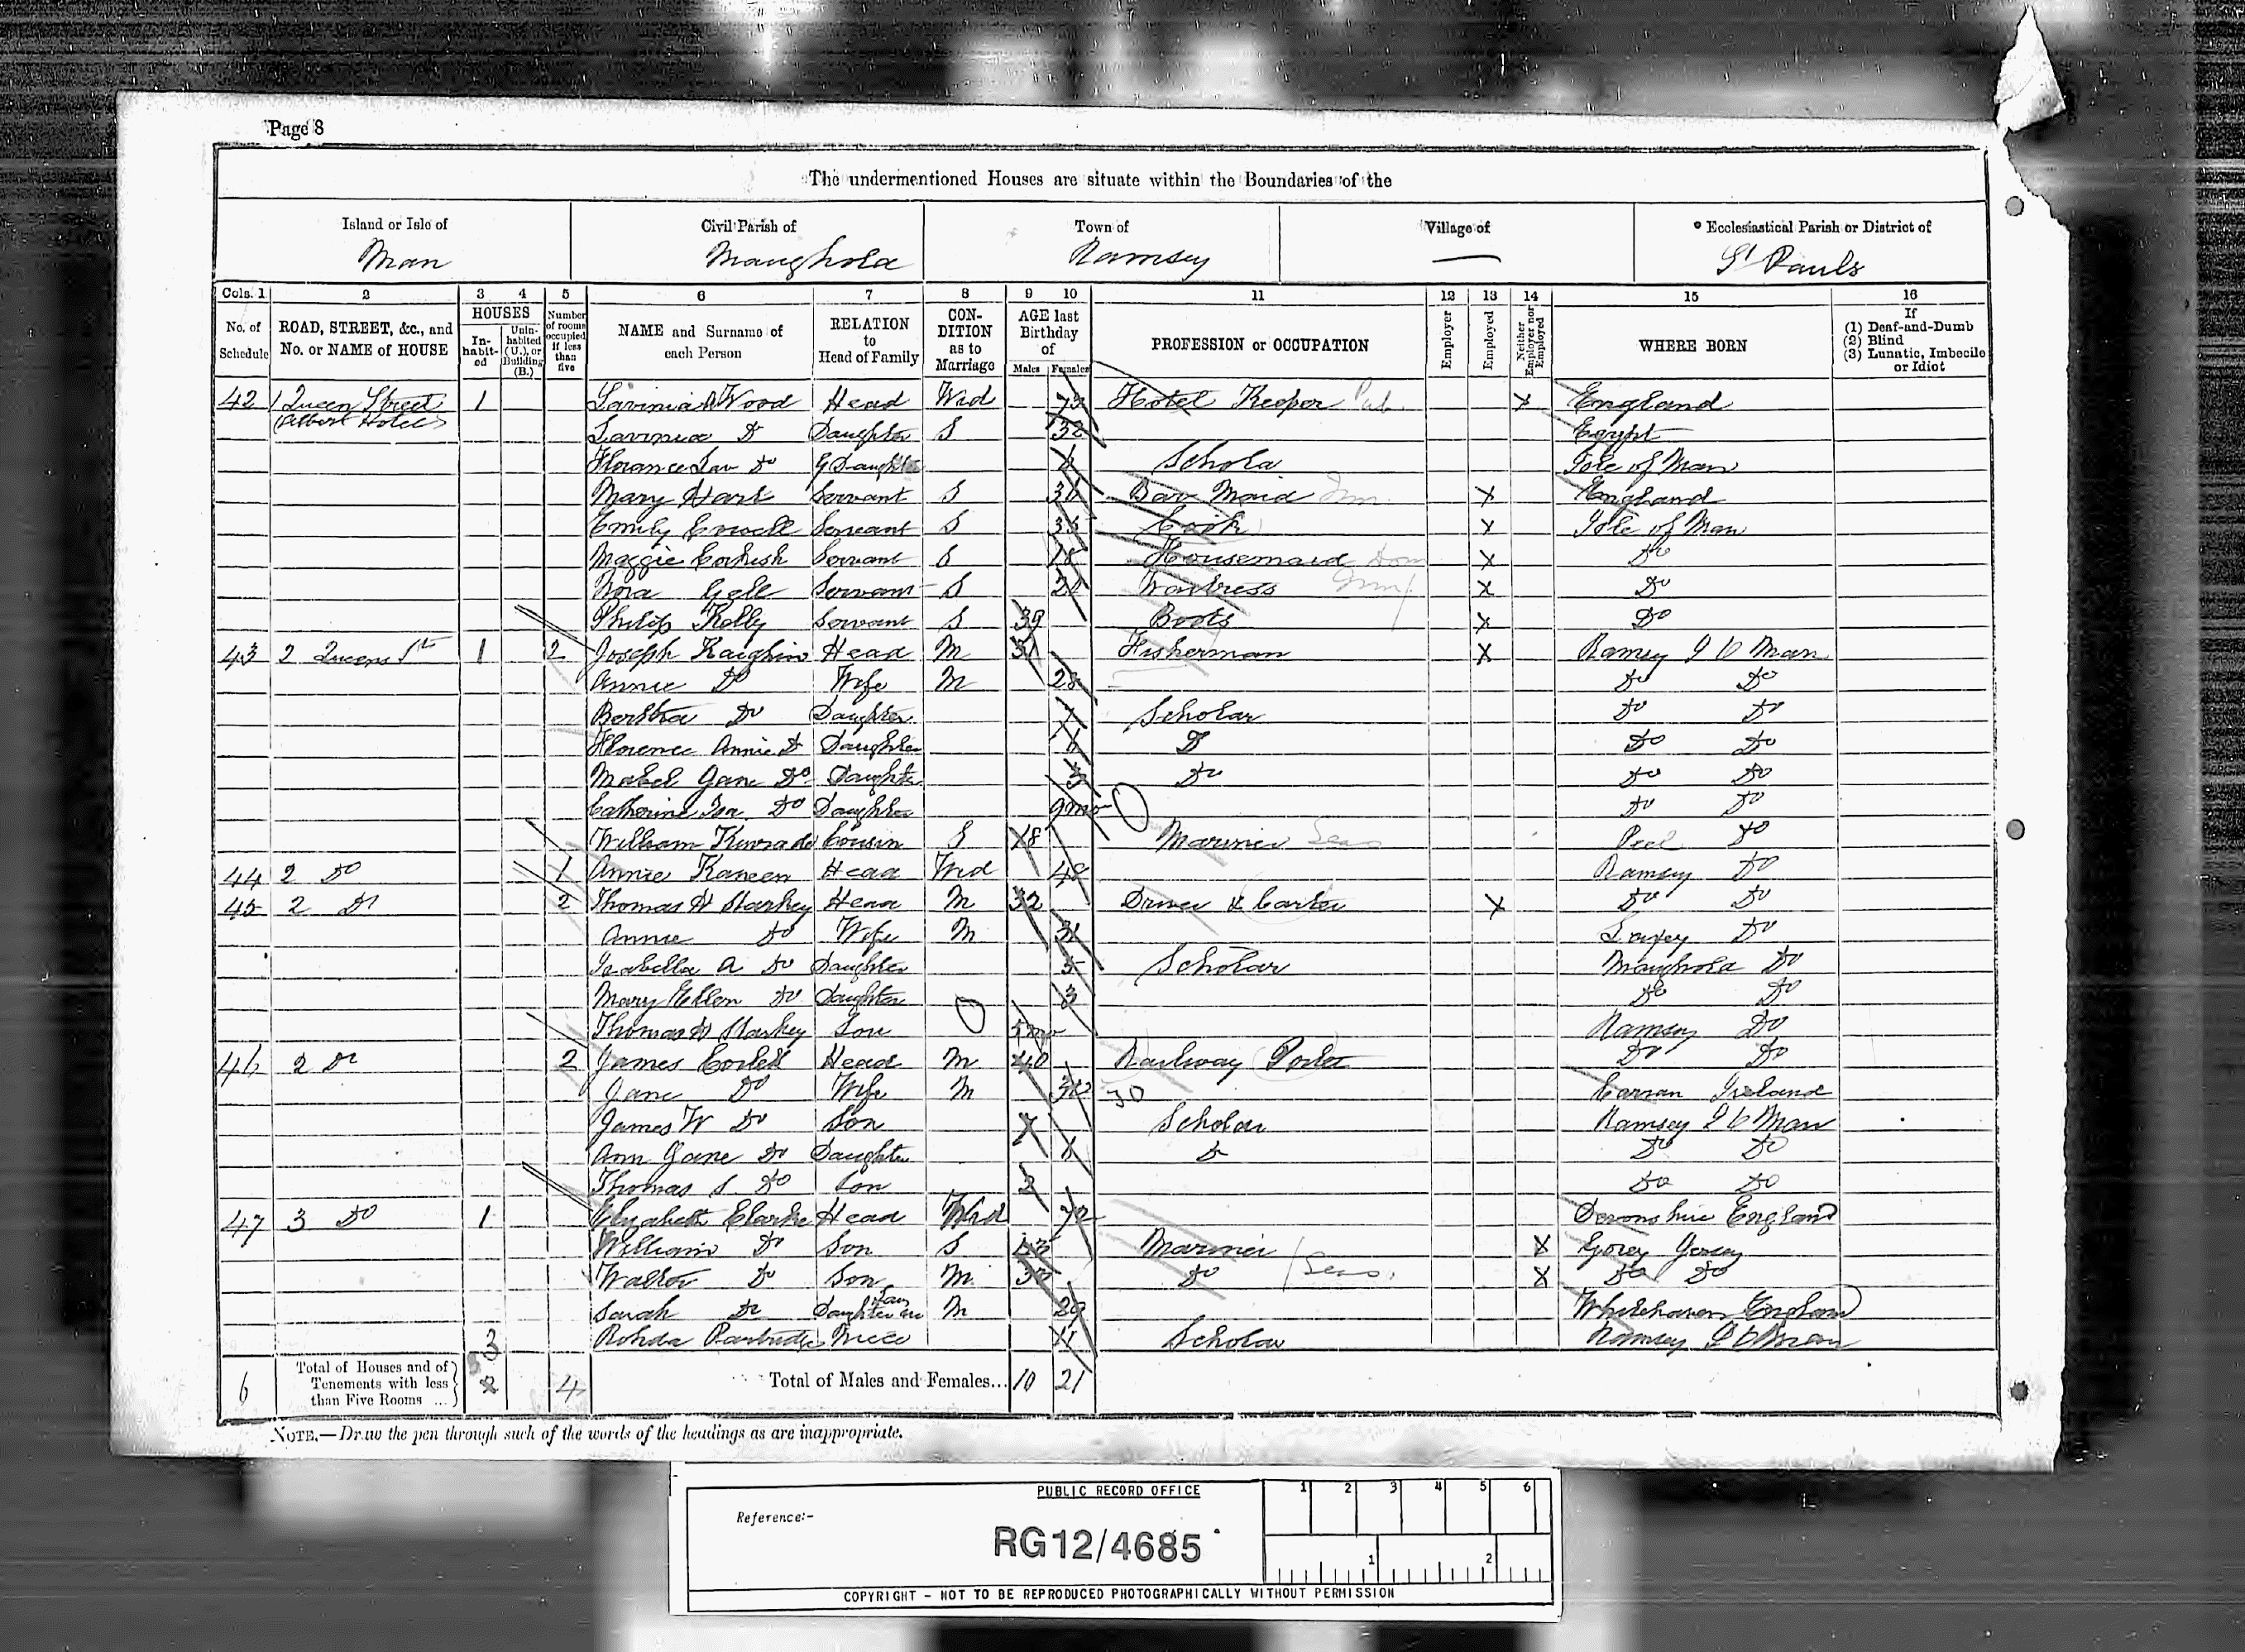 Page 8
The undermentioned Houses are situate within the Boundaries of the
Island or Isle of Man
Civil Parish of Maughold
Town of Ramsey
Village of —
Ecclesiastical Parish or District of St Pauls
Cols. 1 2 3 4 5 6 7 8 9 10 11 12 13 14 15 16
No. of Schedule
ROAD, STREET, &c., and No. or NAME of HOUSE
HOUSES
In-habit-ed
Unin-habited (U.), or Building (B.)
Number of rooms occupied if less than five
NAME and Surname of each Person
RELATION to Head of Family
CON-DITION as to Marriage
AGE last Birthday of
Males Females
PROFESSION or OCCUPATION
Employer
Employed
Neither Employer nor Employed
WHERE BORN
If
(1) Deaf-and-Dumb
(2) Blind
(3) Lunatic, Imbecile or Idiot
42 1 Queen Street 1 Lavinia Wood Head Wid Hotel Keeper Pub x England
(Albert Hotel) Lavinia Do Daughter S 32 Egypt
Florance Lav Do G Daughter Schola Isle of Man
Mary Hark Servant S Bar Maid x England
Emily Cowell Servant S 35 Cook x Isle of Man
Maggie Servant S 18 Housemaid Dom x Do
Nora Gell Servant S Waitress x Do
Philip Kelly Servant S 39 Boots x Do
43 2 Queens St 1 2 Joseph Kaighin Head M 31 Fisherman x Ramsey I O Man
Annie Do Wife M 28 Do Do
Bertha Do Daughter 7 Scholar Do Do
Florence Annie Do Daughter 6 D Do Do
Mabel Jane Do Daughter 3 Do Do Do
Catherine Isa. Do Daughter 9mo Do Do
William Kinrade Cousin S 18 Mariner Seas Peel Do
44 2 Do 1 Annie Kaneen Head Wid 48 Ramsey Do
45 2 Do 2 Thomas H Starkey Head M 32 Driver & Carter x Do Do
Annie Do Wife M 31 Laxey Do
Isabella A Do Daughter 5 Scholar Maughold Do
Mary Ellen Do Daughter 3 Do Do
Thomas H Starkey Son 5mo Ramsey Do
46 2 Do 2 James Corlett Head M 40 Railway Porter Do Do
Jane Do Wife M 30 Ireland
James W Do Son 7 Scholar Ramsey I O Man
Ann Jane Do Daughter Do Do Do
Thomas S Do Son 2 Do Do
47 3 Do 1 Elizabeth Clarke Head Wid 72 Devonshire England
William Do Son S Mariner x Gorey Jersey
Walter Do Son M Do Seas. x Do Do
Sarah Do Daughter in Law M 29 Whitehaven England
Niece 11 Scholar Ramsey I O Man
6 Total of Houses and of Tenements with less than Five Rooms ... 3 4 Total of Males and Females... 10 21
NOTE.—Draw the pen through such of the words of the headings as are inappropriate.
PUBLIC RECORD OFFICE
Reference:-
RG12/4685
1 2 3 4 5 6
1 2
COPYRIGHT - NOT TO BE REPRODUCED PHOTOGRAPHICALLY WITHOUT PERMISSION